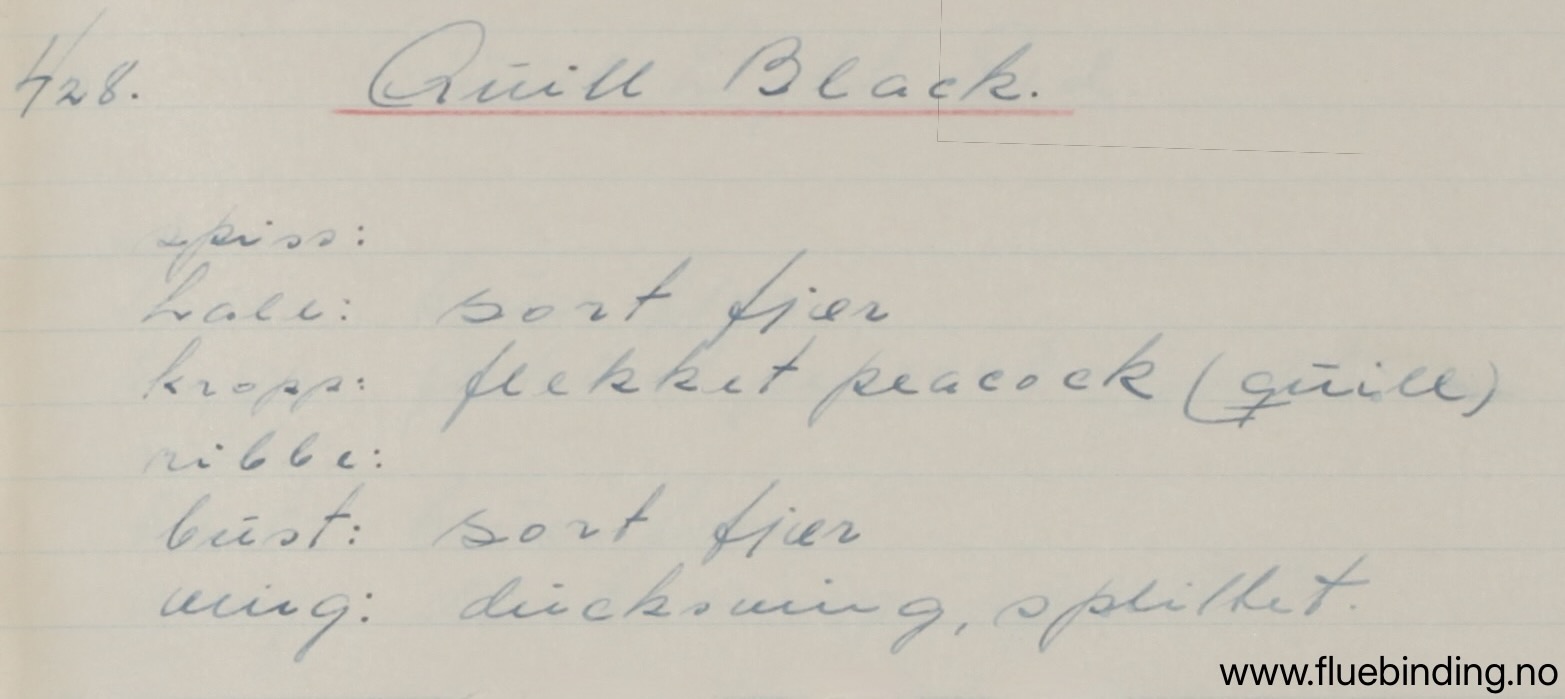 428. Quill Black.
spiss:
hale: sort fjær
kropp: flekket peacock (quill)
ribbe:
bust: sort fjær
ving: duckswing, splittet.
www.fluebinding.no